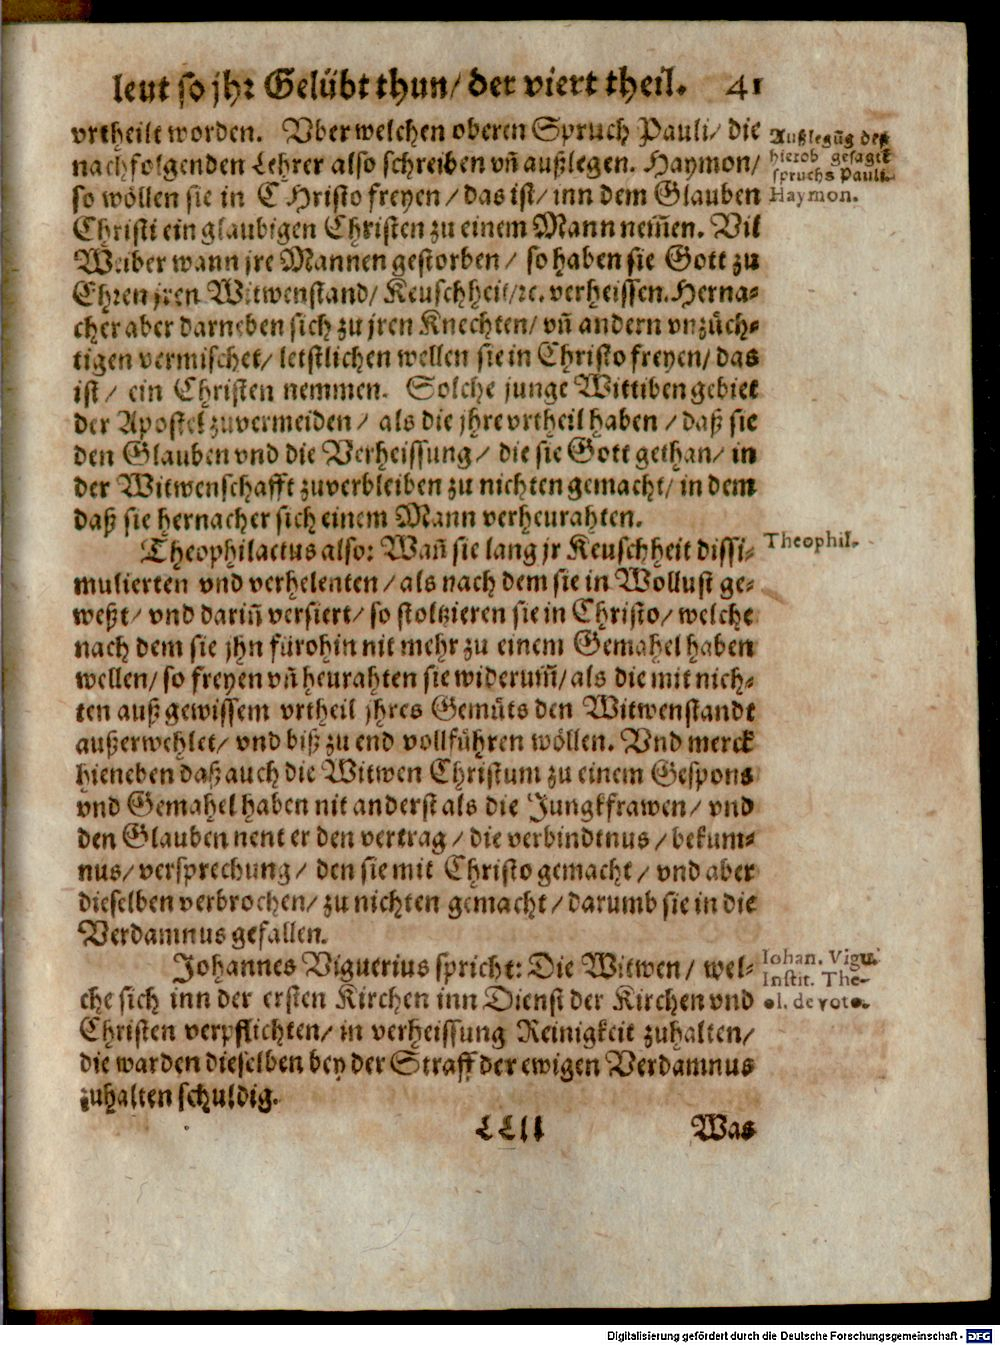 leut so jhr Gelübt thun/ der viert theil. 41
vrtheilt worden. Vber welchen oberen Spruch Pauli/ die
nachfolgenden Lehrer also schreiben vñ außlegen. Haymon/
so wöllen sie in CHristo freyen/ das ist/ inn dem Glauben
Christi ein glaubigen Christen zu einem Mann nem̃en. Vil
Weiber wann jre Mannen gestorben/ so haben sie Gott zu
Ehren jren Witwenstand/ Keuschheit/ ꝛc. verheissen. Herna-
cher aber darneben sich zu jren Knechten/ vñ andern vnzüch-
tigen vermischet/ letstlichen wellen sie in Christo freyen/ das
ist/ ein Christen nemmen. Solche junge Wittiben gebiet
der Apostel zuvermeiden/ als die jhre vrtheil haben/ daß sie
den Glauben vnd die Verheissung/ die sie Gott gethan/ in
der Witwenschafft zuverbleiben zu nichten gemacht/ in dem
daß sie hernacher sich einem Mann verheurahten.
Theophilactus also: Wañ sie lang jr Keuschheit dissi-
mulierten vnd verhelenten/ als nach dem sie in Wollust ge-
weßt/ vnd dariñ versiert/ so stoltzieren sie in Christo/ welche
nach dem sie jhn fürohin nit mehr zu einem Gemahel haben
wellen/ so freyen vñ heurahten sie widerum̃/ als die mit nich-
ten auß gewissem vrtheil jhres Gemüts den Witwenstandt
außerwehlet/ vnd biß zu end vollführen wöllen. Vnd merck
hieneben daß auch die Witwen Christum zu einem Gespons
vnd Gemahel haben nit anderst als die Jungkfrawen/ vnd
den Glauben nent er den vertrag/ die verbindtnus/ bekum-
nus/ versprechung/ den sie mit Christo gemacht/ vnd aber
dieselben verbrochen/ zu nichten gemacht/ darumb sie in die
Verdamnus gefallen.
Johannes Viguerius spricht: Die Witwen/ wel-
che sich inn der ersten Kirchen inn Dienst der Kirchen vnd
Christen verpflichten/ in verheissung Reinigkeit zuhalten/
die warden dieselben bey der Straff der ewigen Verdamnus
zuhalten schuldig.
Was
Außlegũg deß
hierob gesagtē
spruchs Pauli.
Haymon.
Theophil.
Iohan. Vigu.
Instit. The-
ol. de voto.
Digitalisierung gefördert durch die Deutsche Forschungsgemeinschaft - DFG